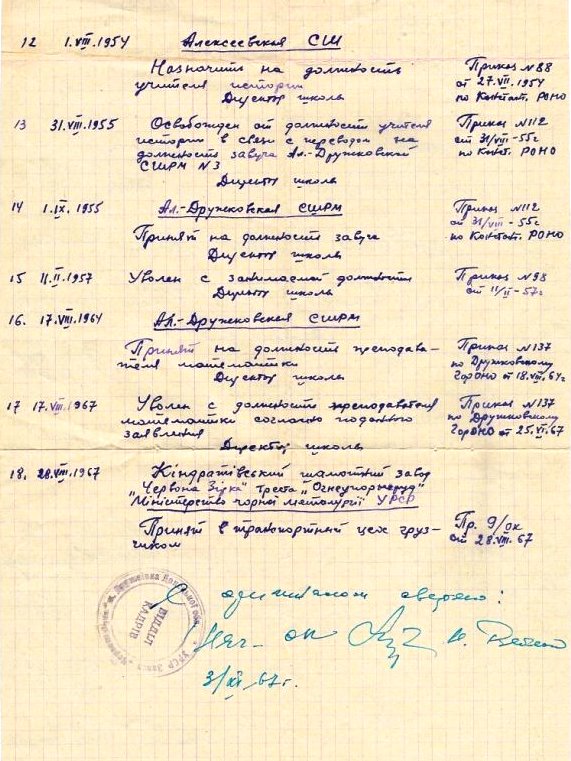 12 1.VIII.1954 Алексеевская СШ
Назначить на должность Приказ №88
учителя истории от 27.VII.1954
Директор школы по Констант. РОНО
13 31.VIII.1955 Освобожден от должности учителя Приказ №112
истории в связи с переводом на от 31/VIII-55г
должность завуча Ал.-Дружковской по Конст. РОНО
СШРМ №3
Директор школы
14 1.IX.1955 Ал.-Дружковская СШРМ Приказ №112
от 31/VIII-55г.
Принят на должность завуча по Констант. РОНО
Директор школы
15 11.II.1957 Уволен с занимаемой должности Приказ №98
Директор школы от 11/II-57г
16. 17.VIII.1964 Ал.-Дружковская СШРМ
Принят на должность преподава- Приказ №137
теля математики по Дружковскому
Директор школы ГорОНО от 18.VIII.64г.
17 17.VIII.1967 Уволен с должности преподавателя Приказ №137
математики согласно поданного по Дружковскому
заявления ГорОНО от 25.VII.67
Директор школы
18. 28.VIII.1967 Кіндратівський шамотний завод
"Червона Зірка" треста "Огнеупорнеруд"
"Міністерство чорної металургії УРСР
Принят в транспортный цех груз- Пр. 9/ок
чиком от 28.VIII.67
С оригиналом сверено:
Нач. ОК
3/XI.67г.
ВІДДІЛ
КАДРІВ